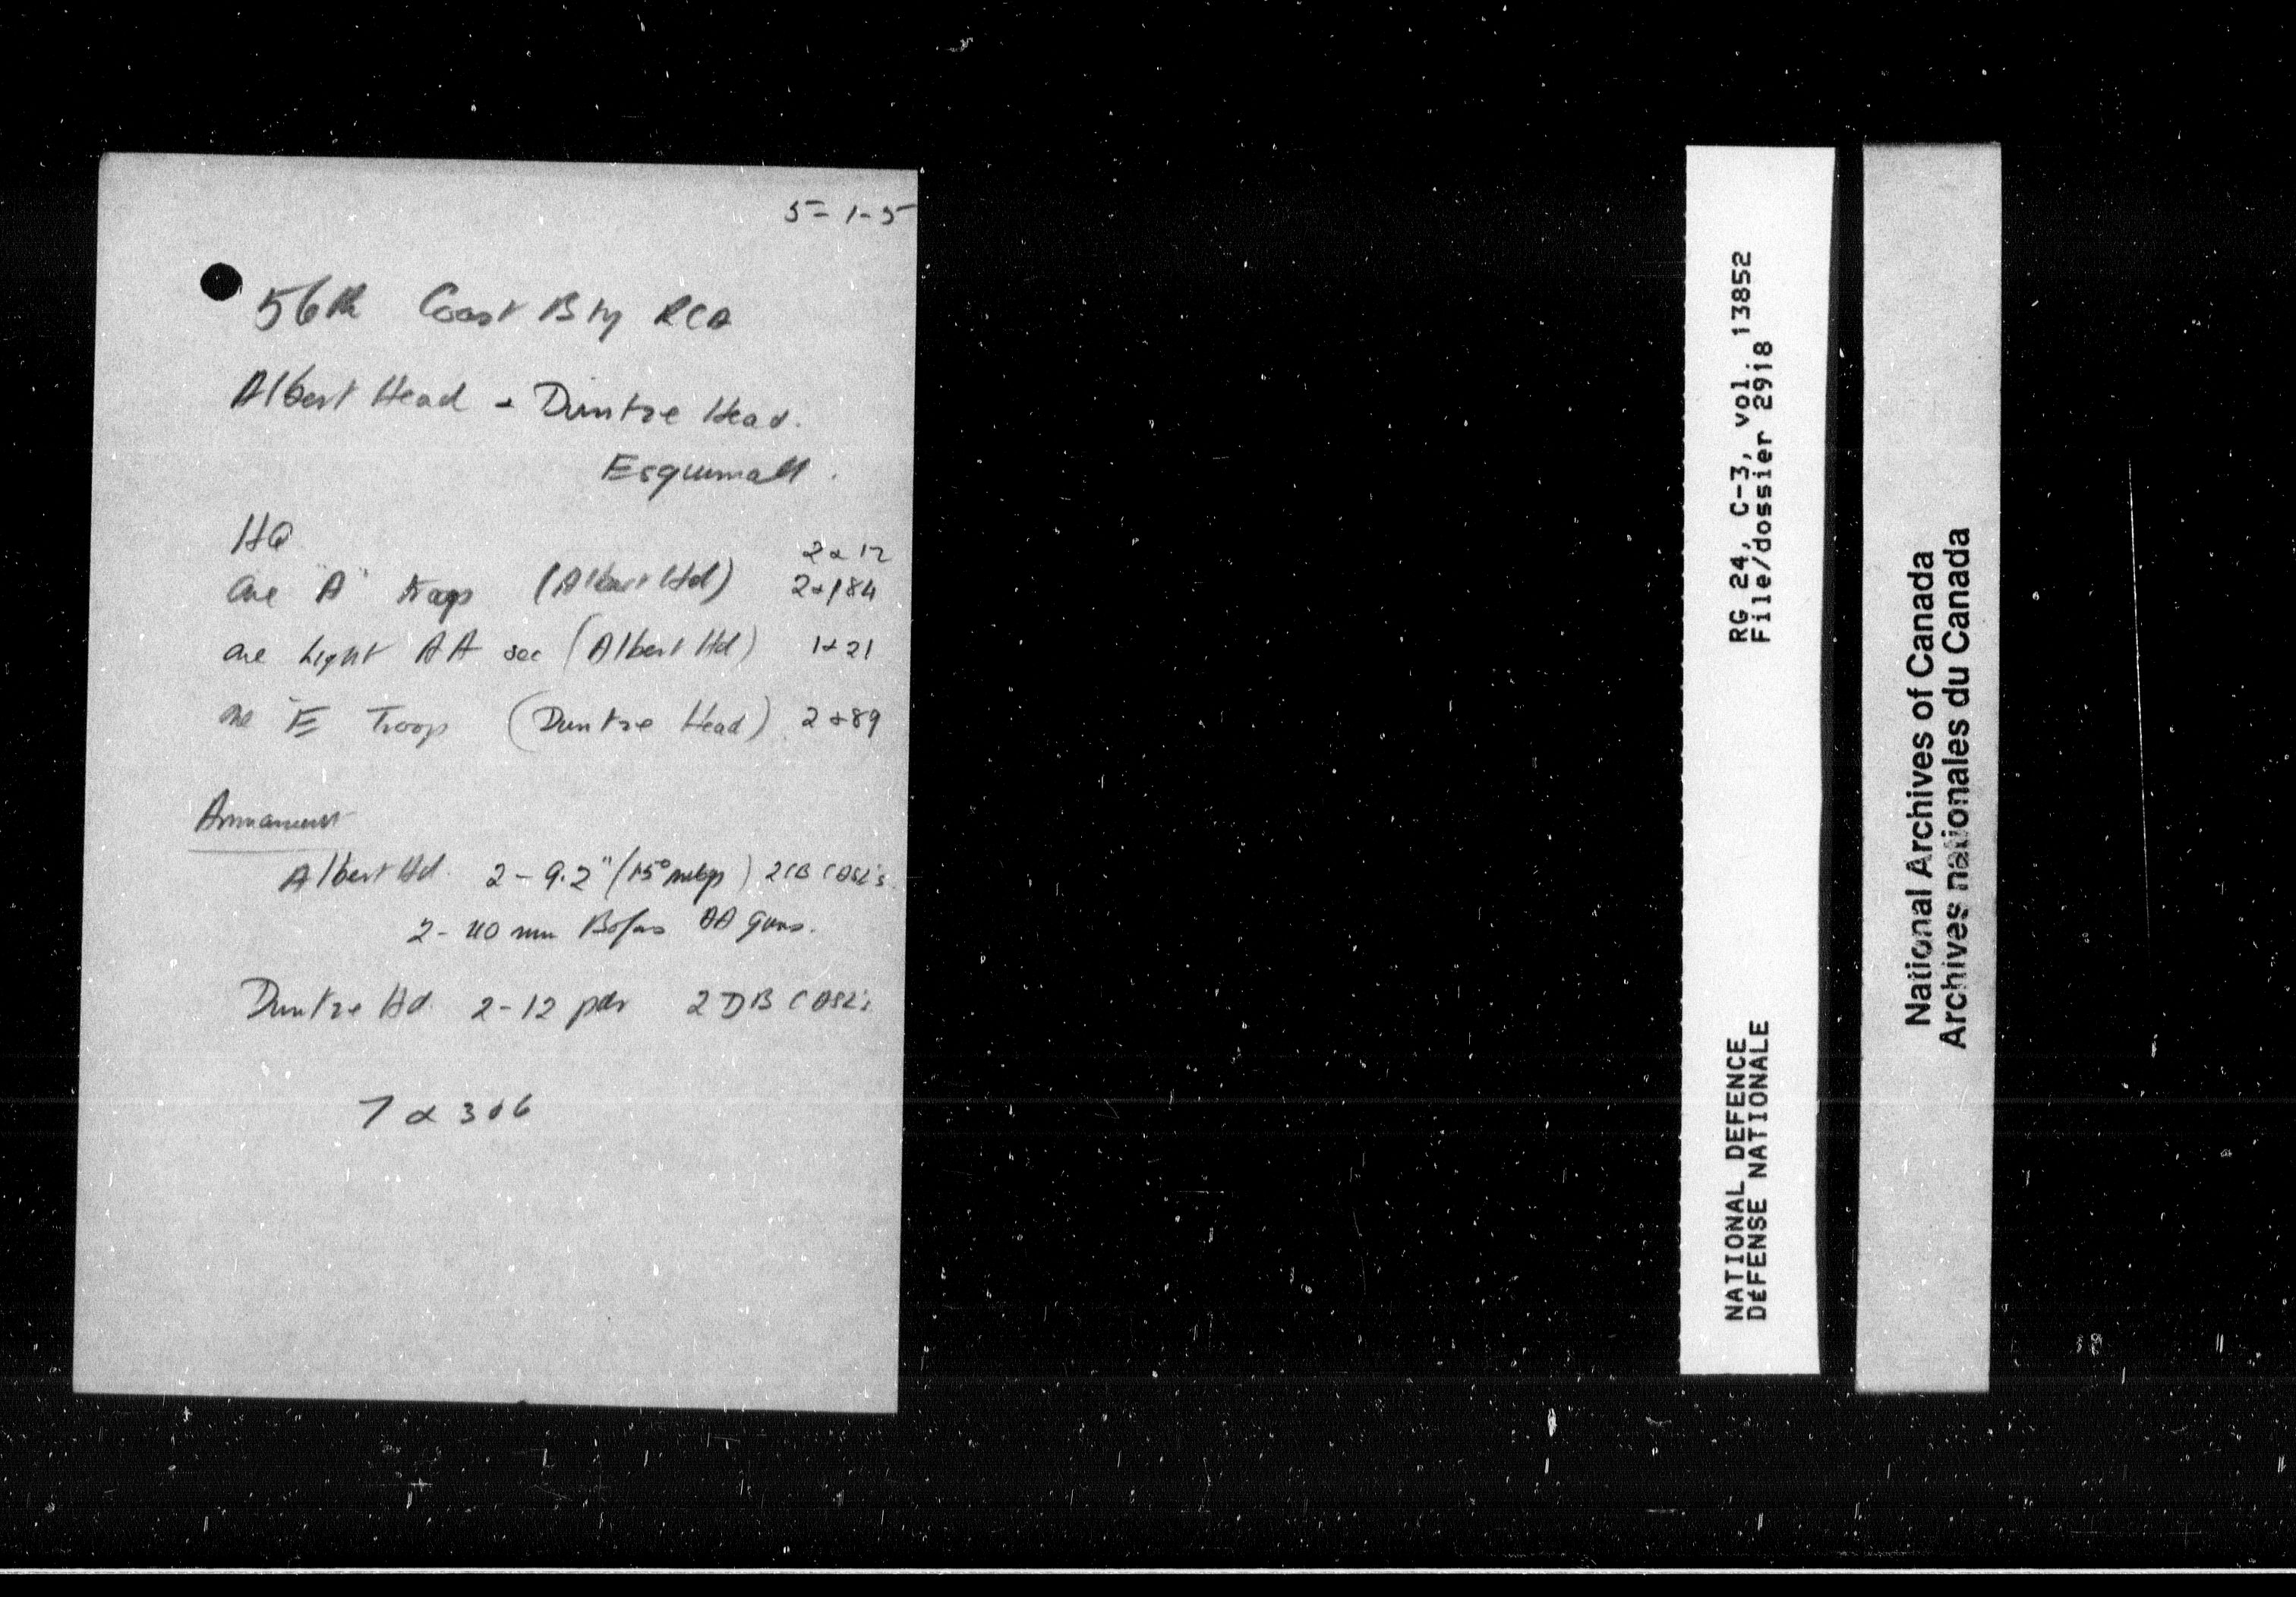 5-1-5
56th Coast Bty RCA
Albert Head - Duntze Head.
Esquimalt.
HQ 2 & 12
One "A" troop (Albert Hd) 2 & 184
One Light AA sec (Albert Hd) 1 & 21
One "E" Troop (Duntze Head) 2 & 89
Armament
Albert Hd. 2 - 9.2" (15° mtgs) 2 CB CASL's.
2 - 40 mm Bofors AA guns.
Duntze Hd. 2 - 12 pdr 2 DB CASL's
7 & 306
RG 24, C-3, vol. 13852
File/dossier 2918
NATIONAL DEFENCE
DÉFENSE NATIONALE
National Archives of Canada
Archives nationales du Canada